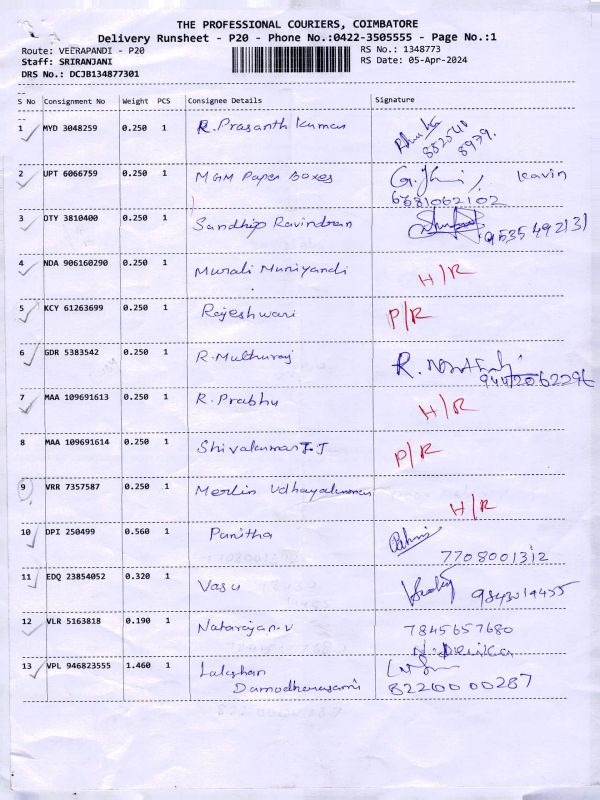 THE PROFESSIONAL COURIERS, COIMBATORE
Delivery Runsheet - P20 - Phone No.:0422-3505555 - Page No.:1
Route: VEERAPANDI - P20 RS No.: 1348773
Staff: SRIRANJANI RS Date: 05-Apr-2024
DRS No.: DCJB134877301
S No Consignment No Weight PCS Consignee Details Signature
1 MYD 3048259 0.250 1 R. Prasanth Kumar
882540
8979.
2 UPT 6066759 0.250 1 MGM Paper Boxes Kavin
6681062102
3 DTY 3810400 0.250 1 Sandhip Ravindran 9535492131
4 NDA 906160290 0.250 1 Murali Muniyandi H/R
5 KCY 61263699 0.250 1 Rajeshwari P/R
6 GDR 5383542 0.250 1 R. Muthuraj R.
9442062296
7 MAA 109691613 0.250 1 R. Prabhu H/R
8 MAA 109691614 0.250 1 Shivakumar T.J P/R
9 VRR 7357587 0.250 1 Merlin Udhayakumar H/R
10 DPI 250499 0.560 1 Punitha
7708001312
11 EDQ 23854052 0.320 1 Vasu 9843014455
12 VLR 5163818 0.190 1 Natarajan.v 7845657680
13 VPL 946823555 1.460 1 Lakshan
Damodharasami 82200 00287